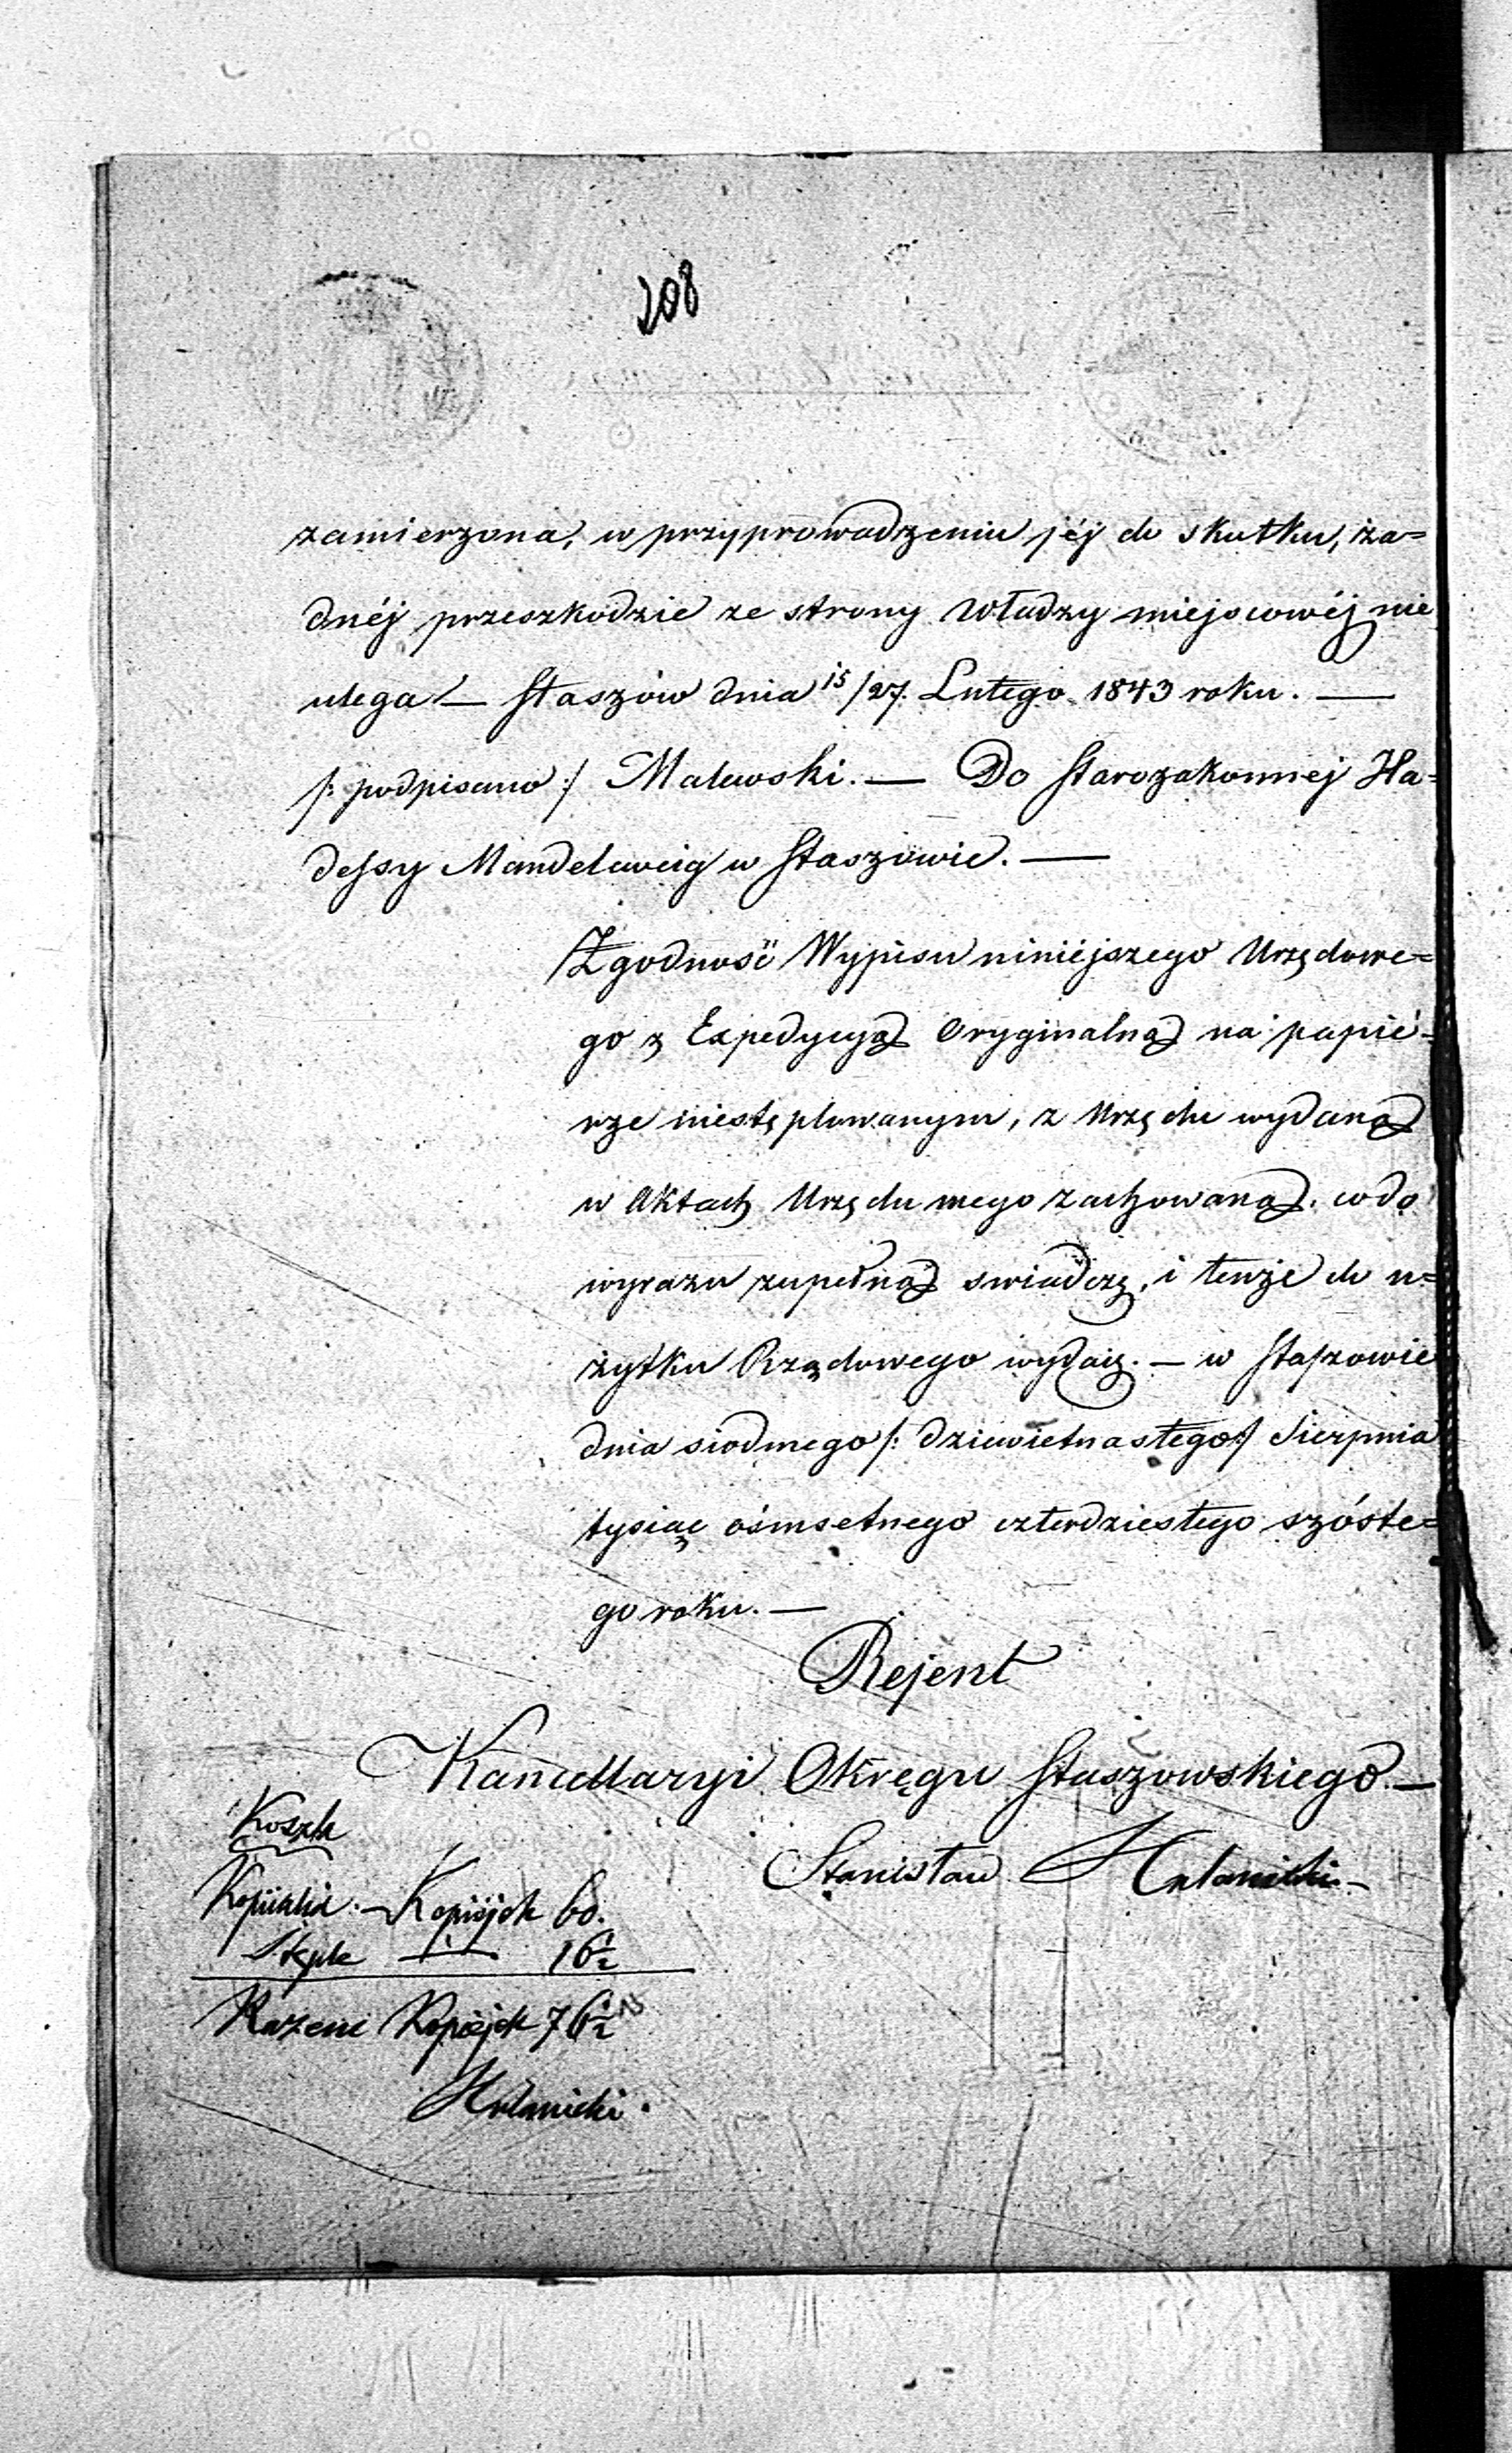 208
zamierzona, w przyprowadzeniu jéj do skutku, ża=
dnéj przeszkodzie ze strony Władzy miejscowéj nie
ulega. — Staszów dnia 15/27. Lutego 1843 roku. —
/: podpisano :/ Malewski. — Do Starozakonnej Ha=
dessy Mandelzweig w Staszowie. —
Zgodność Wypisu niniéjszego Urzędowe=
go z Expedycyą Oryginalną na papié=
rze niestęplowanym, z Urzędu wydaną
w Aktach Urzędu mego zachowaną, co do
wyrazu zupełną swiadczę, i tenże do u=
żytku Rządowego wydaię. — w Staszowie
dnia siodmego /: dziewietnastego :/ Sierpnia
tysiąc ośmsetnego czterdziestego szóste=
go roku. —
Rejent
Kancellaryi Okręgu Staszowskiego —
Stanisław
Koszta
Kopialia. — Kopiéjek 60.
Stępla — 16½
Razem Kopiejek 76½